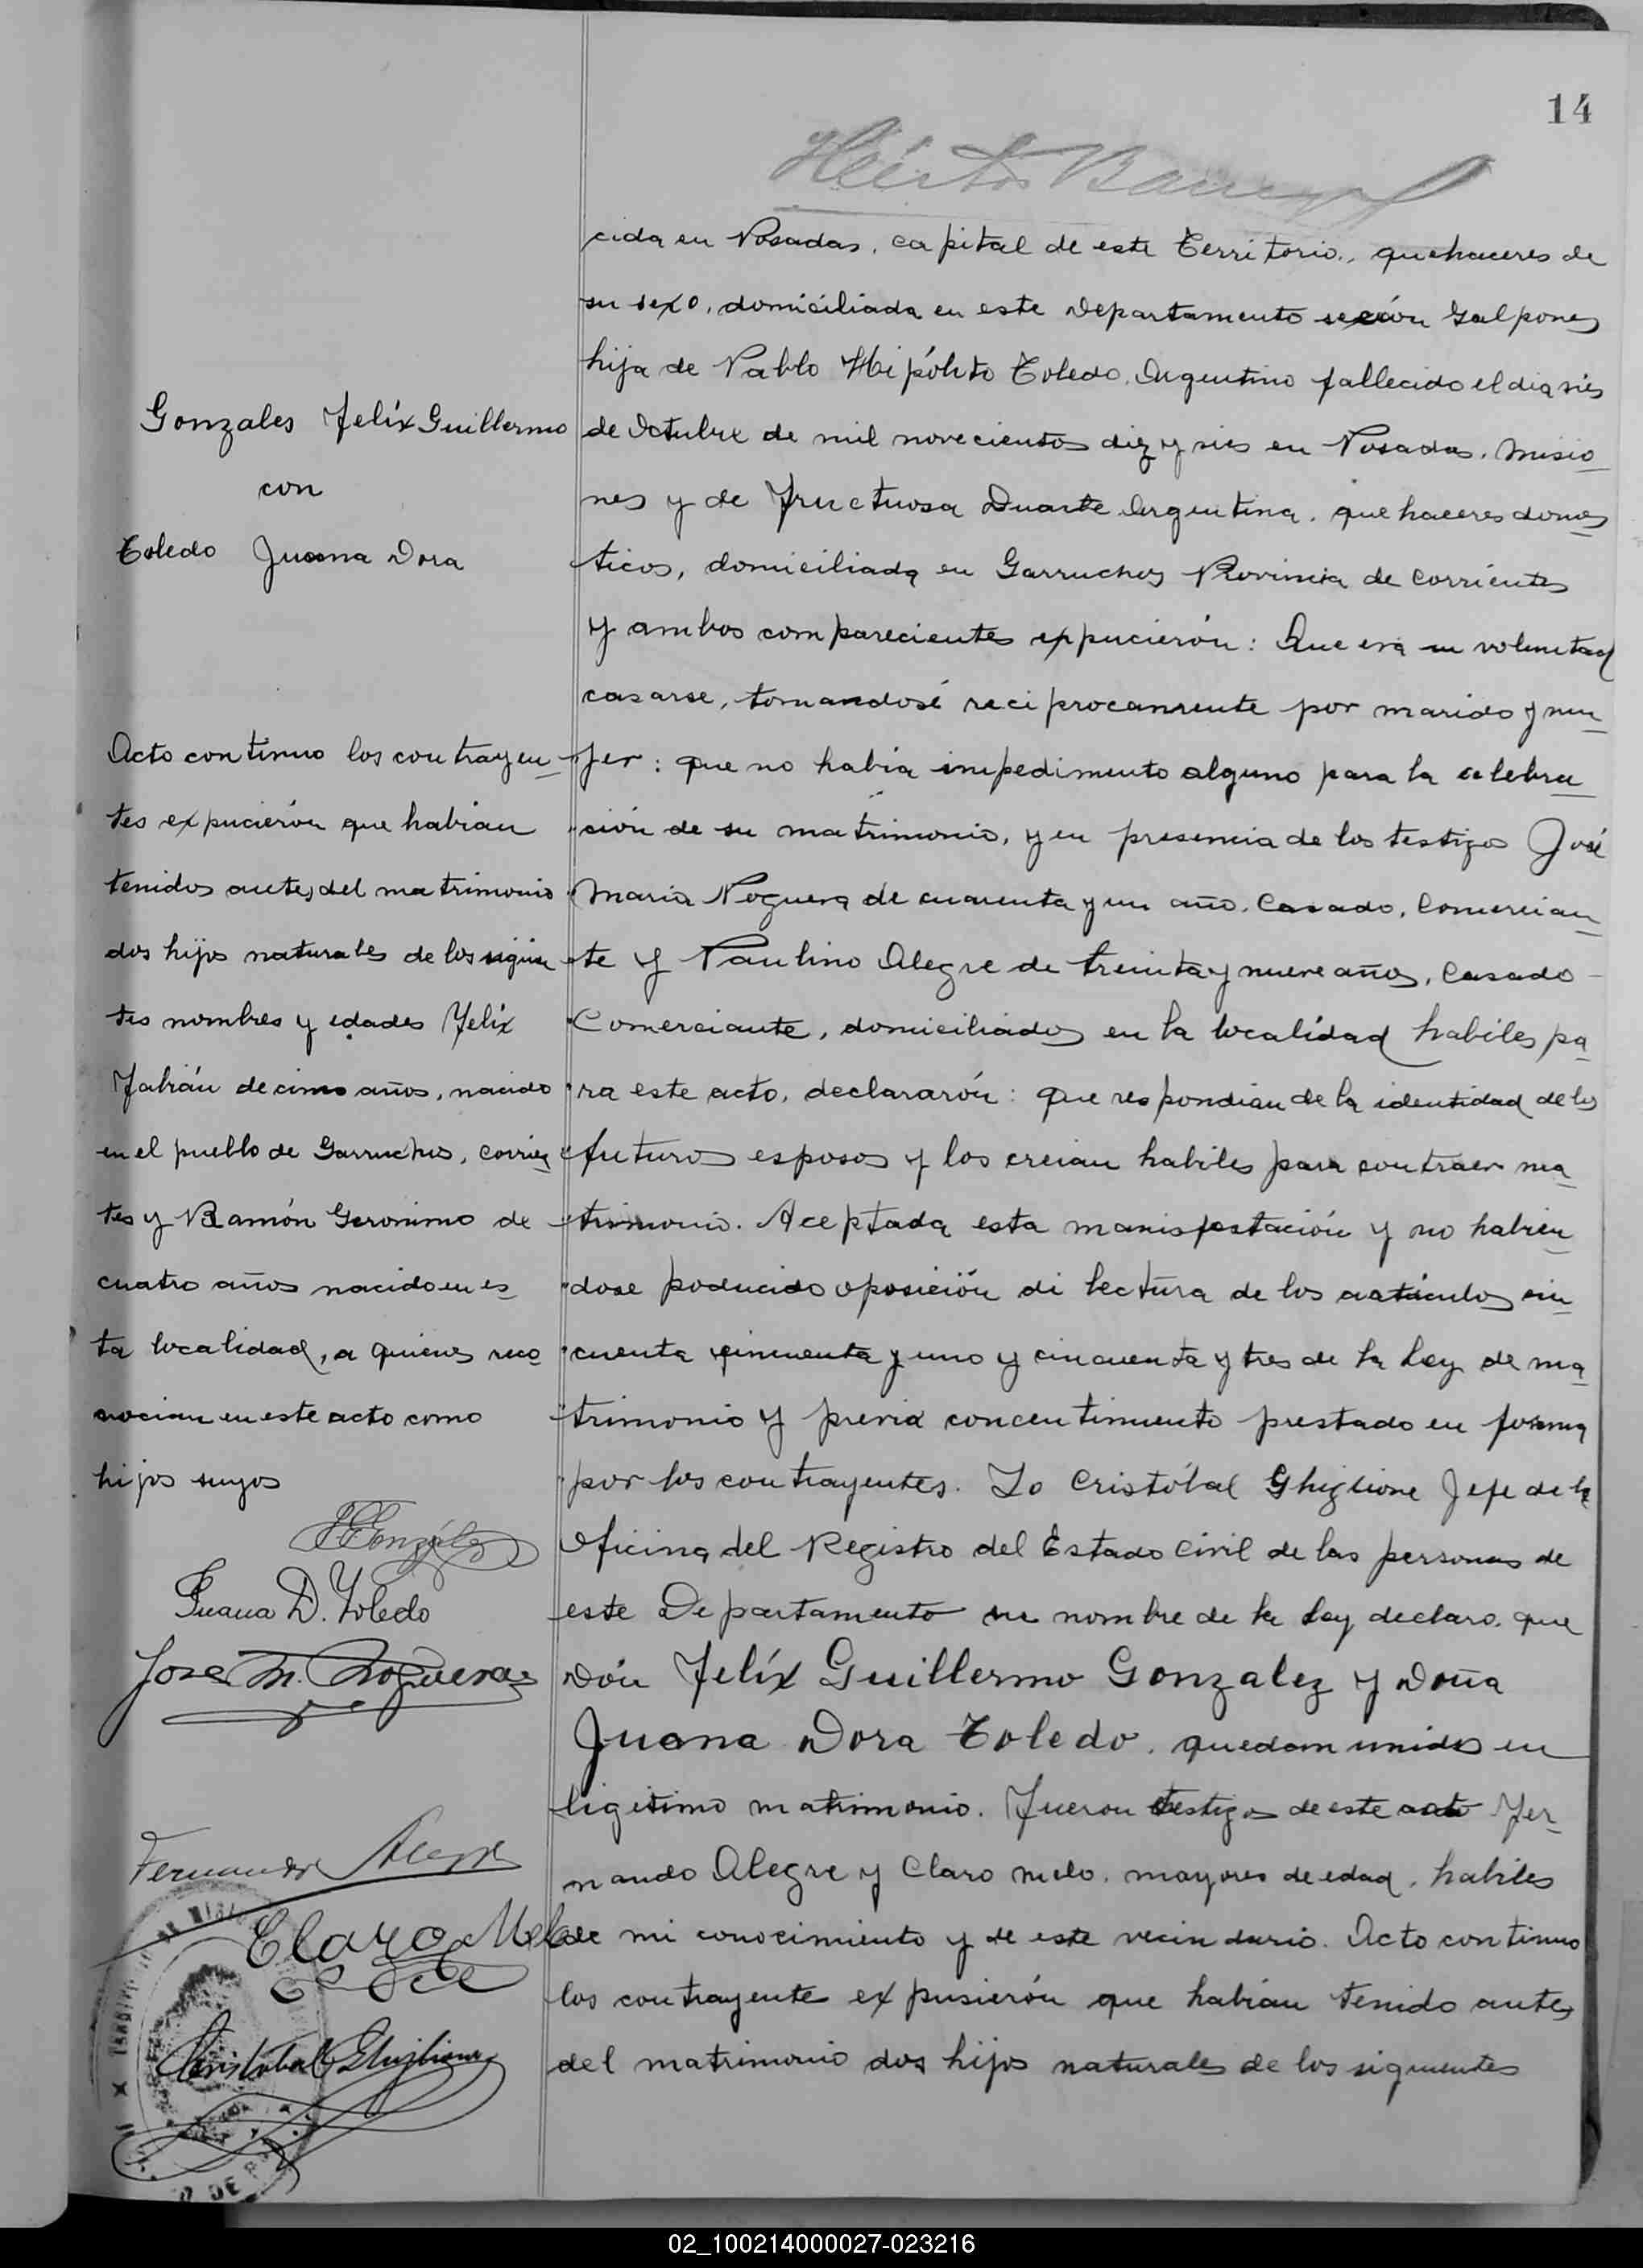 14
Héctor
cida en Posadas, capital de este Territorio, quehaceres de
su sexo, domiciliada en este Departamento seción Galpones
hija de Pablo Hipólito Toledo, Argentino fallecido el dia seis
de Octubre de mil novecientos diez y seis en Posadas, Misio_
nes y de Fructuosa Duarte Argentina, quehaceres domes_
ticos, domiciliada en Garruchos Provincia de Corrientes
y ambos comparecientes expucierón: Que era su voluntad
casarse, tomandosé reciprocamente por marido y mu_
jer: que no habia impedimento alguno para la celebra_
ción de su matrimonio, y en presencia de los testigos José
Maria Noguera de cuarenta y un año, Casado, Comercian_
te y Paulino Alegre de treinta y nueve años, Casado -
Comerciante, domiciliados en la localidad habiles pa_
ra este acto, declararón: que respondian de la identidad de los
futuros esposos y los creian habiles para contraer ma_
trimonio. Aceptada esta manisfestación y no habien_
dose poducido oposición di lectura de los articulos cin_
cuenta cincuenta y uno y cincuenta y tres de la Ley de ma_
trimonio y previa concentimiento prestado en forma
por los contrayentes. Yo Cristóbal Ghiglione Jefe de la
Oficina del Registro del Estado Civil de las personas de
este Departamento en nombre de la Ley declaro que
Dón Felíx Guillermo Gonzalez y Doña
Juana Dora Toledo, quedam unidos en
ligitimo matrimonio. Fueron testigos de este acto Fer_
nando Alegre y Claro Melo, mayores de edad, habiles
de mi conocimiento y de este vecindario. Acto continuo
los contrayente expusierón que habian tenido antes
del matrimonio dos hijos naturales de los siguientes
Gonzales Felíx Guillermo
con
Toledo Juana Dora
Acto continuo los contrayen_
tes expucierón que habian
tenidos antes del matrimonio
dos hijos naturales de los siguien
tes nombres y edades Felíx
Fabián de cinco años, nacido
en el pueblo de Garruchos, Corrien
tes y Ramón Geronimo de
cuatro años nacido en es_
ta localidad, a quienes reco_
nocian en este acto como
hijos suyos
FGonzález
Juana D. Toledo
Jose M. Noguera
Fernando Alegre
Claro Melo
Cristobal Ghiglione
02_100214000027-023216